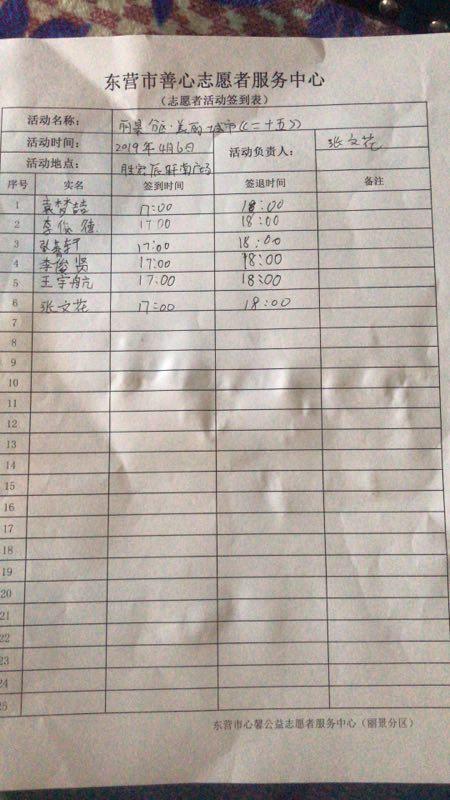 东营市善心志愿者服务中心
(志愿者活动签到表)
活动名称: 丽景分区·美丽城市(二十五)
活动时间: 2019年4月6日 活动负责人: 张文花
活动地点: 胜宏辰轩南广场
序号 实名 签到时间 签退时间 备注
1 袁梦喆 17:00 18:00
2 李俊德 17:00 18:00
3 17:00 18:00
4 李俊贤 17:00 18:00
5 王宇航 17:00 18:00
6 张文花 17:00 18:00
7
8
9
10
11
12
13
14
15
16
17
18
19
20
21
22
23
24
25
东营市心馨公益志愿者服务中心(丽景分区)